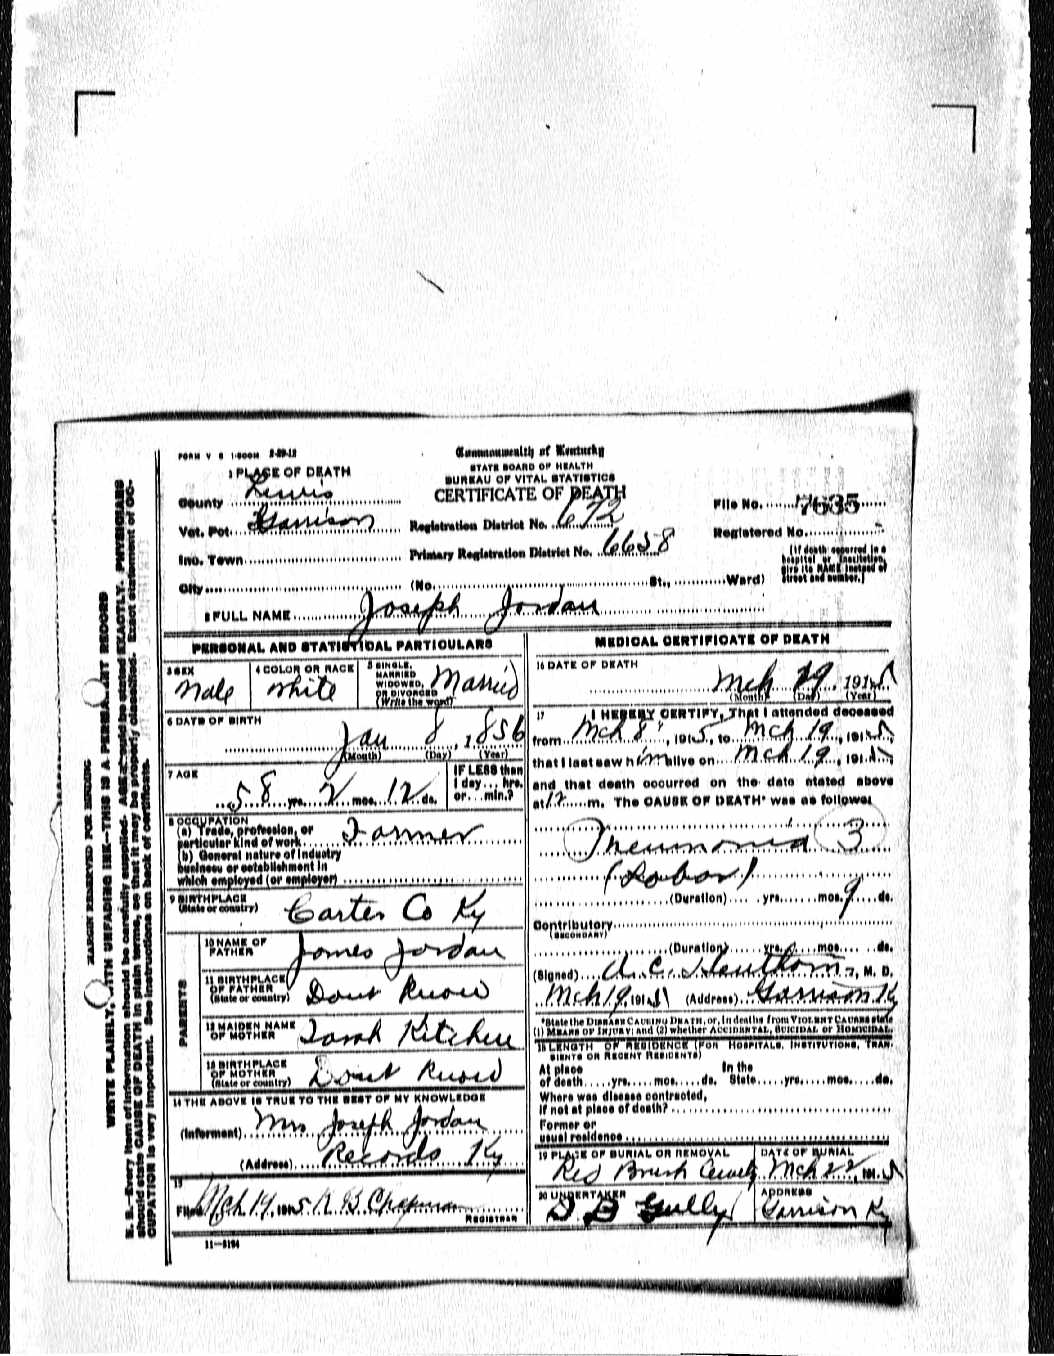 FORM V S 1-500M 2-29-12
Commonwealth of Kentucky
STATE BOARD OF HEALTH
BUREAU OF VITAL STATISTICS
CERTIFICATE OF DEATH
1 PLACE OF DEATH
County Lewis
Vot. Pct. Garrison
Inc. Town
City (No. St., Ward)
Registration District No. 672
Primary Registration District No. 6658
File No. 7635
Registered No.
[If death occurred in a hospital or institution, give its NAME instead of street and number.]
2 FULL NAME Joseph Jordan
PERSONAL AND STATISTICAL PARTICULARS
3 SEX Male
4 COLOR OR RACE White
5 SINGLE, MARRIED WIDOWED, OR DIVORCED (Write the word) Married
6 DATE OF BIRTH
Jan 8, 1856
(Month) (Day) (Year)
7 AGE
58 yrs. 2 mos. 12 ds.
IF LESS than 1 day... hrs. or... min.?
8 OCCUPATION
(a) Trade, profession, or particular kind of work Farmer
(b) General nature of industry
business or establishment in
which employed (or employer)
9 BIRTHPLACE
(State or country) Carter Co Ky
PARENTS
10 NAME OF FATHER James Jordan
11 BIRTHPLACE OF FATHER (State or country) Dont Know
12 MAIDEN NAME OF MOTHER Sarah Kitchen
13 BIRTHPLACE OF MOTHER (State or country) Dont Know
14 THE ABOVE IS TRUE TO THE BEST OF MY KNOWLEDGE
(Informant) Mrs Joseph Jordan
(Address) Records Ky
15
Filed Mch 19, 1915 R B Chapman
REGISTRAR
11-3194
MEDICAL CERTIFICATE OF DEATH
16 DATE OF DEATH
Mch 19, 1915
(Month) (Day) (Year)
17 I HEREBY CERTIFY, That I attended deceased
from Mch 8, 1915, to Mch 19, 1915,
that I last saw him alive on Mch 19, 1915,
and that death occurred on the date stated above
at 12 m. The CAUSE OF DEATH* was as follows:
Pneumonia 3
(Lobar)
(Duration) yrs. mos. 9 ds.
Contributory
(SECONDARY)
(Duration) yrs. mos. ds.
(Signed) A. C. , M. D.
Mch 19, 1915 (Address) Garrison Ky
*State the DISEASE CAUSING DEATH, or, in deaths from VIOLENT CAUSES state
(1) MEANS OF INJURY; and (2) whether ACCIDENTAL, SUICIDAL or HOMICIDAL.
18 LENGTH OF RESIDENCE (FOR HOSPITALS, INSTITUTIONS, TRANSIENTS OR RECENT RESIDENTS)
At place of death yrs. mos. ds. In the State yrs. mos. ds.
Where was disease contracted,
if not at place of death?
Former or
usual residence
19 PLACE OF BURIAL OR REMOVAL
Red Brush
DATE OF BURIAL
Mch 22, 1915
20 UNDERTAKER
D B Gully
ADDRESS
Garrison Ky
MARGIN RESERVED FOR BINDING
WRITE PLAINLY, WITH UNFADING INK—THIS IS A PERMANENT RECORD
N. B.—Every item of information should be carefully supplied. AGE should be stated EXACTLY. PHYSICIANS
should state CAUSE OF DEATH in plain terms, so that it may be properly classified. Exact statement of OC-
CUPATION is very important. See instructions on back of certificate.